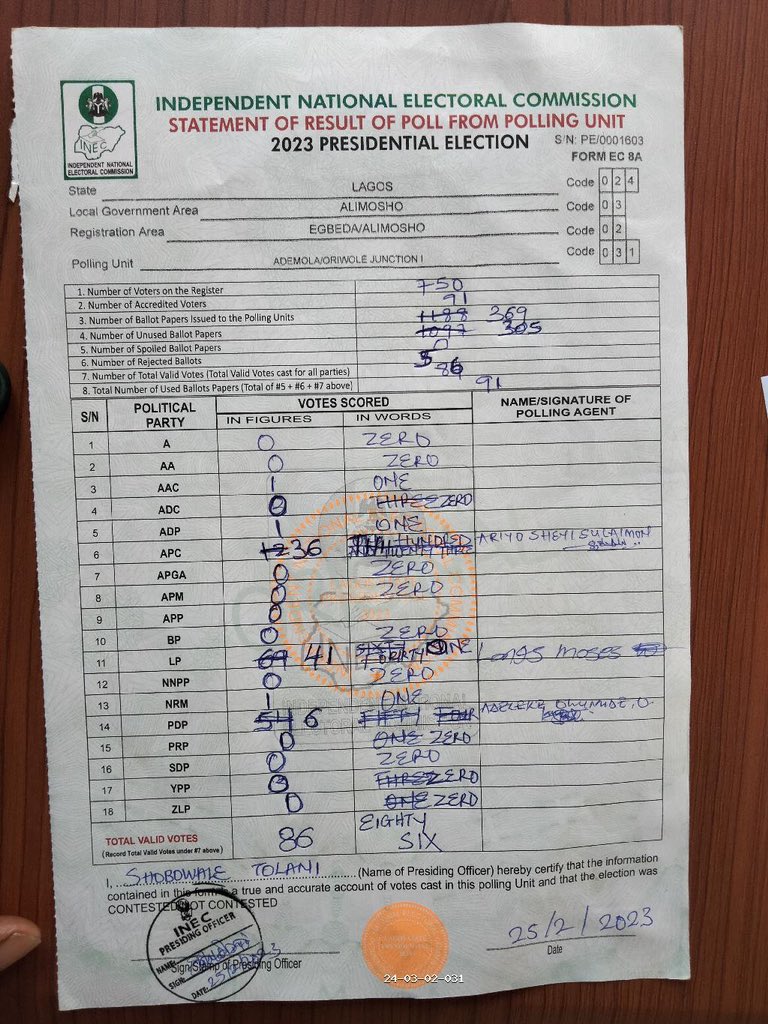 INDEPENDENT NATIONAL ELECTORAL COMMISSION
STATEMENT OF RESULT OF POLL FROM POLLING UNIT
2023 PRESIDENTIAL ELECTION
S/N: PE/0001603
FORM EC 8A
INEC
INDEPENDENT NATIONAL
ELECTORAL COMMISSION
State LAGOS Code 0 2 4
Local Government Area ALIMOSHO Code 0 3
Registration Area EGBEDA/ALIMOSHO Code 0 2
Polling Unit ADEMOLA/ORIWOLE JUNCTION I Code 0 3 1
1. Number of Voters on the Register 750
2. Number of Accredited Voters 91
3. Number of Ballot Papers Issued to the Polling Units 1188 369
4. Number of Unused Ballot Papers 1097 305
5. Number of Spoiled Ballot Papers 0
6. Number of Rejected Ballots 5
7. Number of Total Valid Votes (Total Valid Votes cast for all parties) 86
8. Total Number of Used Ballots Papers (Total of #5 + #6 + #7 above) 91
S/N POLITICAL PARTY VOTES SCORED NAME/SIGNATURE OF POLLING AGENT
IN FIGURES IN WORDS
1 A 0 ZERO
2 AA 0 ZERO
3 AAC 1 ONE
4 ADC 0 THREE ZERO
5 ADP 1 ONE
6 APC 12 36 HUNDRED AND TWENTY THREE ARIYO SHEYI SULAIMON
7 APGA 0 ZERO
8 APM 0 ZERO
9 APP 0
10 BP 0 ZERO
11 LP 69 41 SIXTY ONE MOSES
12 NNPP 0 ZERO
13 NRM 1 ONE
14 PDP 54 6 FIFTY FOUR ADELEKE
15 PRP 0 ONE ZERO
16 SDP 0 ZERO
17 YPP 0 THREE ZERO
18 ZLP 0 ONE ZERO
TOTAL VALID VOTES 86 EIGHTY SIX
(Record Total Valid Votes under #7 above)
I, SHOBOWALE TOLANI (Name of Presiding Officer) hereby certify that the information
contained in this form is a true and accurate account of votes cast in this polling Unit and that the election was
CONTESTED/NOT CONTESTED
INEC
PRESIDING OFFICER
NAME:
SIGN:
DATE: 25/2/2023
Sign/Stamp of Presiding Officer
25/2/2023
Date
24-03-02-031